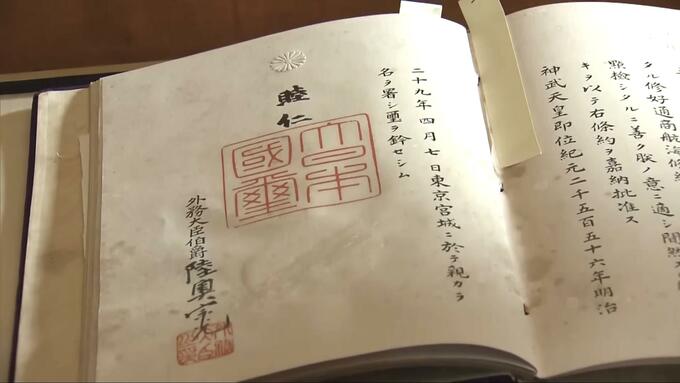 タル修好通商航海條
點檢シタルニ善ク朕ノ意ニ適シ間然
キヲ以テ右條約ヲ嘉納批准ス
神武天皇即位紀元二千五百五十六年明治
二十九年四月七日東京宮城ニ於テ親カラ
名ヲ署シ璽ヲ鈐セシム
睦仁
大日本
國璽
外務大臣伯爵陸奥宗光